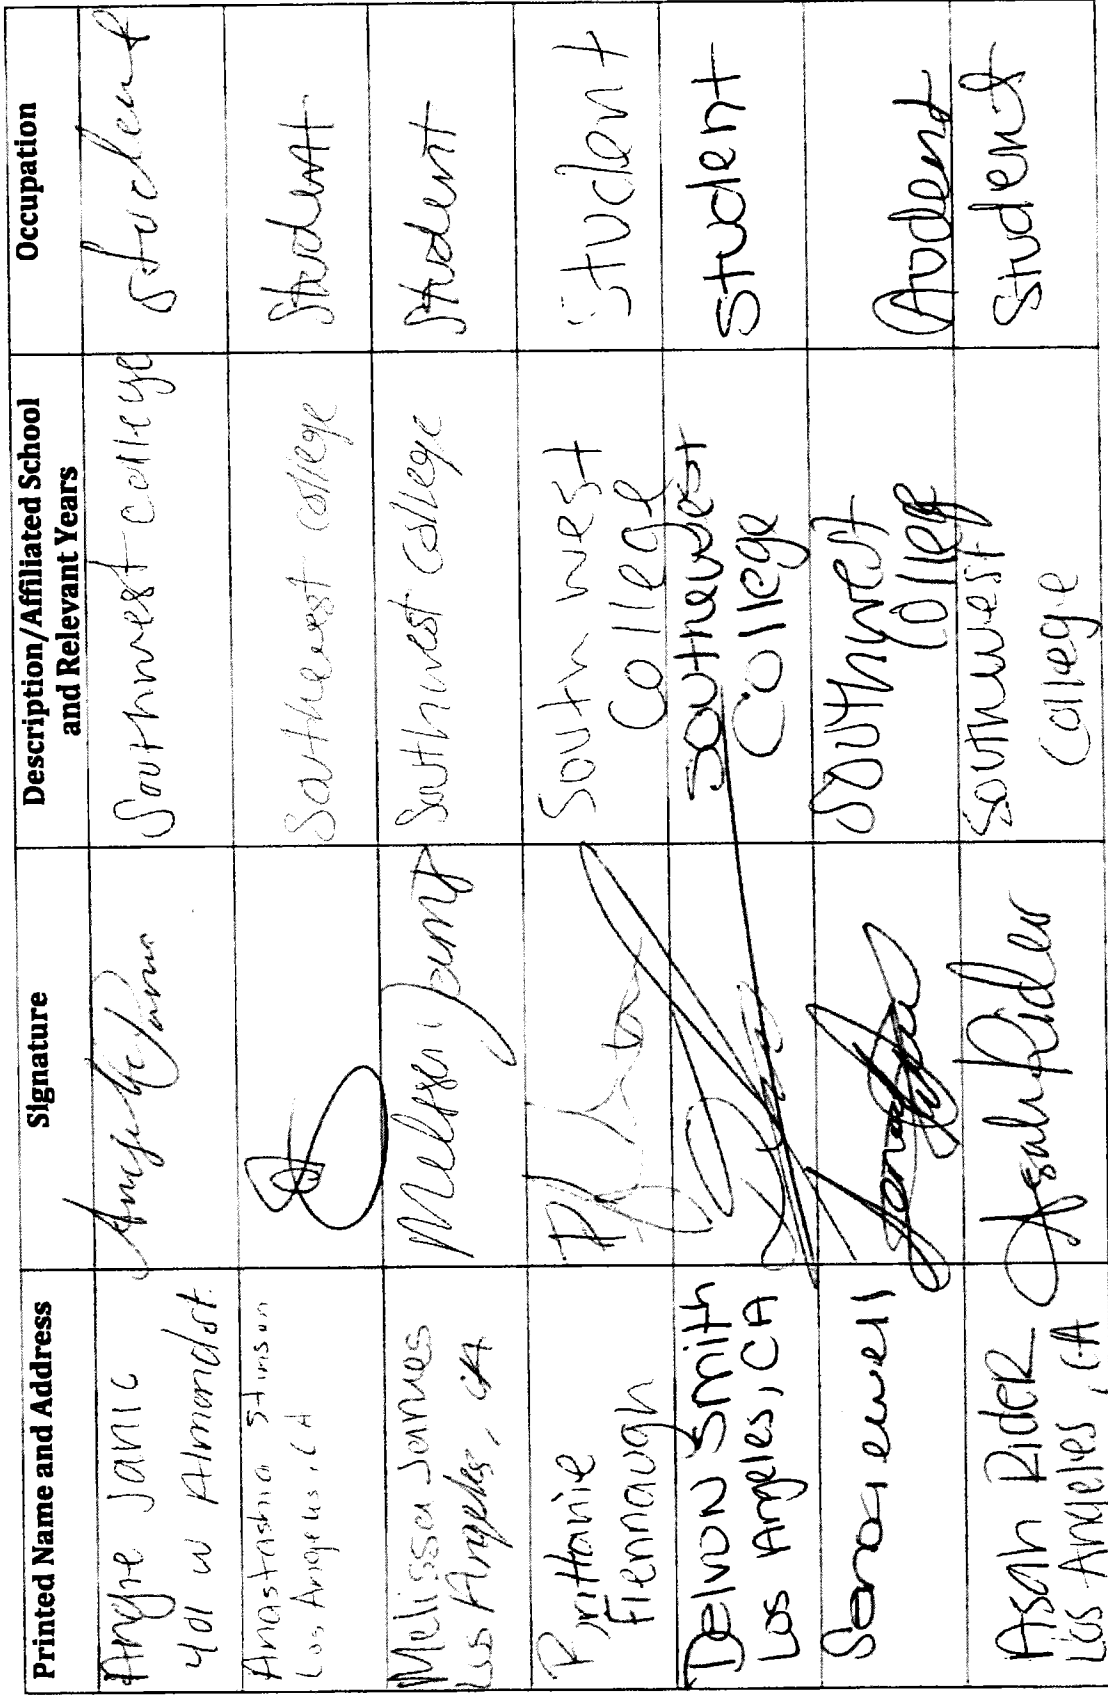 Printed Name and Address
Signature
Description/Affiliated School
and Relevant Years
Occupation
Angie Janic
401 W Almond st.
Southwest College
student
Anastashia Stinson
Los Angeles, CA
Southwest College
Student
Melissa James
Los Angeles, CA
Melissa James
Southwest College
Student
Brittanie
Flennaugh
South west
College
Student
Delvon Smith
Los Angeles, CA
Southwest
College
Student
Southwest
College
Student
Asah Rider
Los Angeles, CA
Asah Rider
Southwest
College
Student